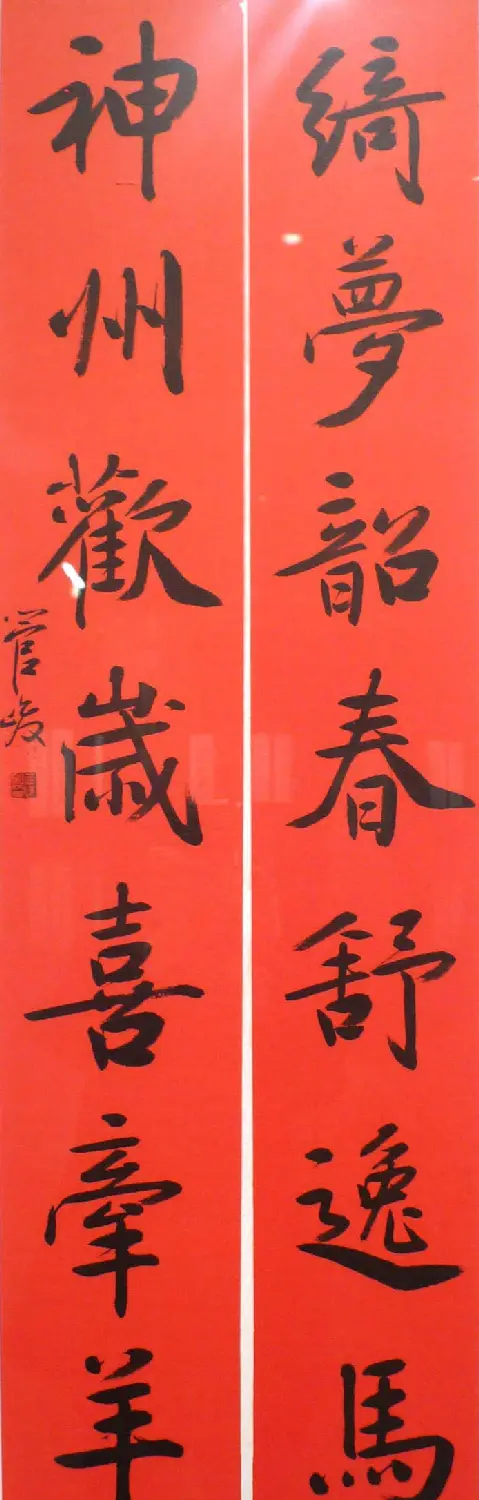 綺夢韶春舒逸馬
神州歡歲喜牽羊
管峻